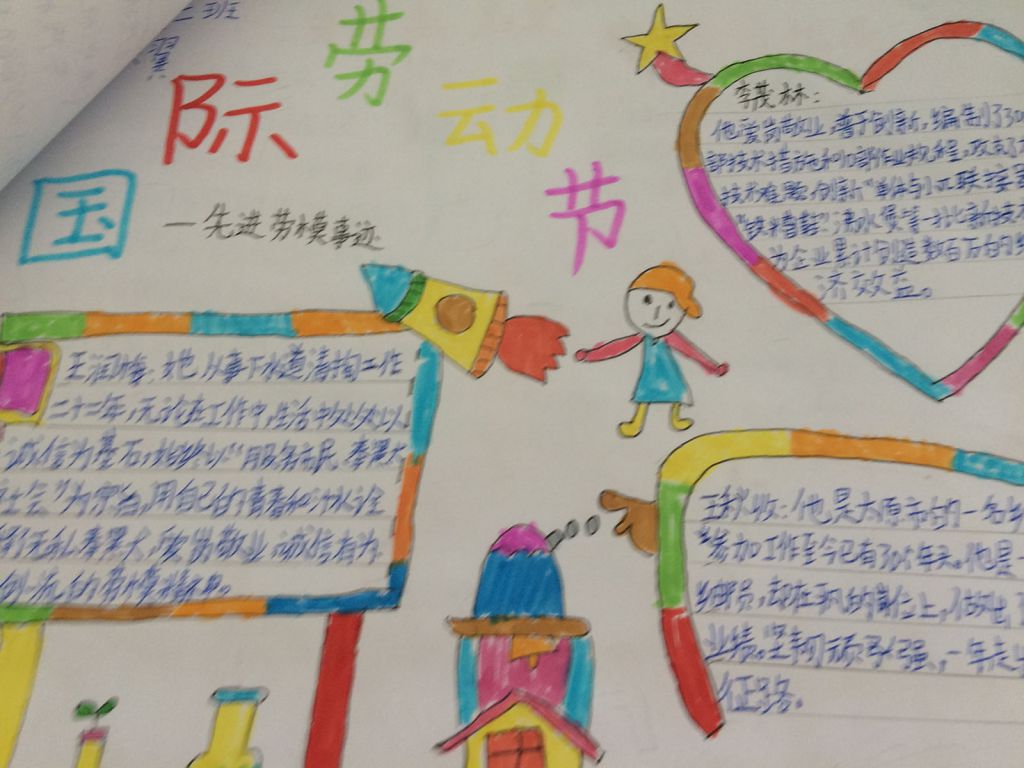 二班
国际劳动节
—先进劳模事迹
李茂林:
他爱岗敬业,善于创新,编制了30
部技术措施和10部作业规程,攻克了
技术难题,创新"单体与小π联接
为企业累计创造数百万的
济效益。
王润梅,她从事下水道清掏工作
二十二年,无论在工作中,生活中处处以
诚信为基石,始终以"服务市民 奉献
社会"为宗旨,用自己的青春和汗水诠
无私奉献,爱岗敬业,诚信有为
创一流的劳模精神。
王秋收:他是太原市的一名
参加工作至今已有30年
员,却在平凡的岗位上,做出了
业绩。坚韧顽强,一年走
征路。